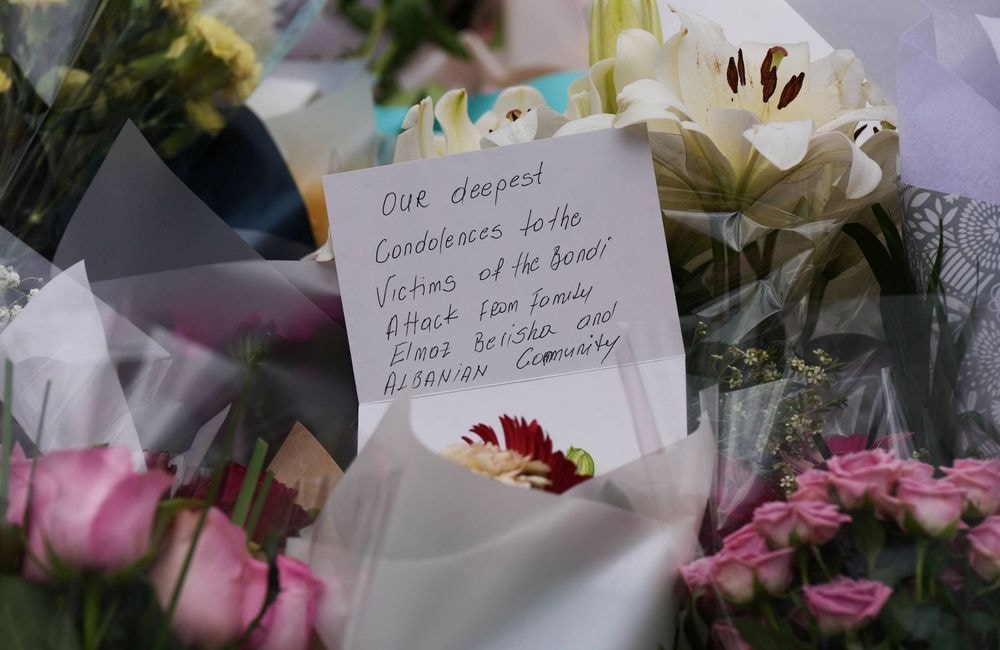 OUR deepest
Condolences to the
Victims of the Bondi
Attack From Family
Elmaz Berisha and
ALBANIAN Community